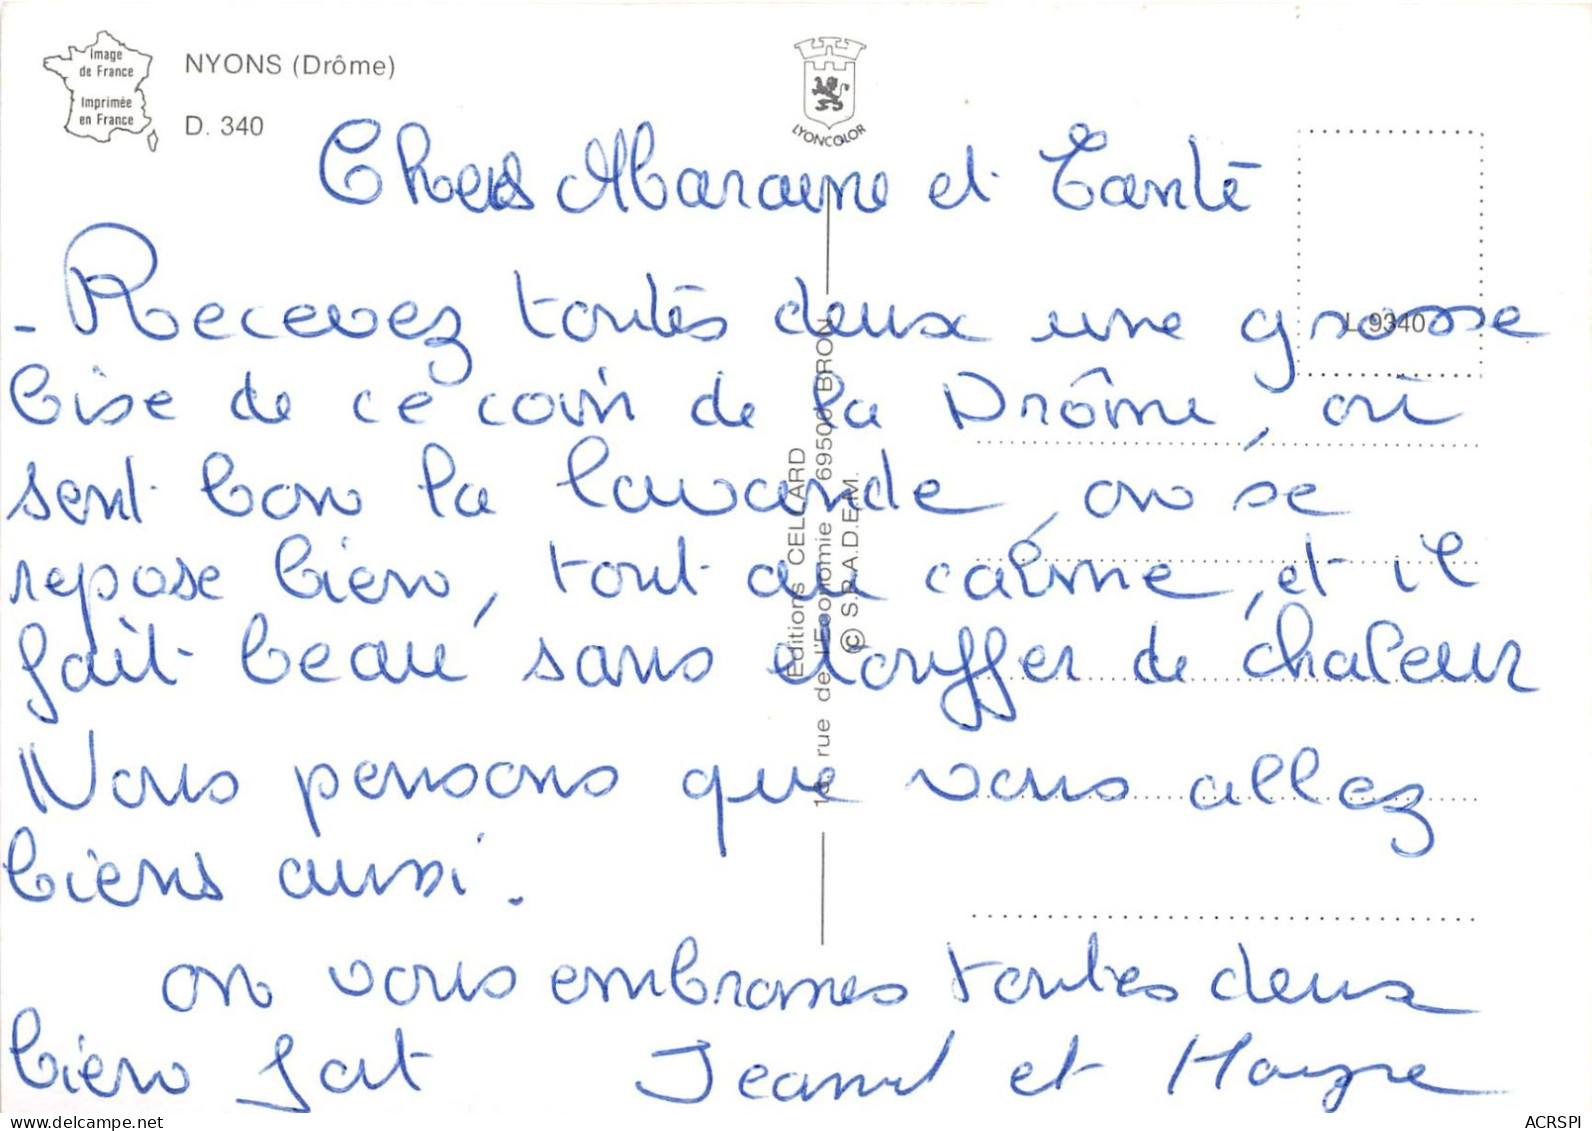 Image
de France
Imprimée
en France
NYONS (Drôme)
D. 340
LYONCOLOR
Chers Maraine et Tante
- Recevez toutes deux une grosse
L. 9340
bise de ce coin de la Drôme, où
sent bon la lavande, on se
repose bien, tout au calme, et il
fait beau, sans etouffer de chaleur
Nous pensons que vous allez
biens aussi.
on vous embrasses toutes deux
bien fort Jeannot et
Editions CELLARD
rue de l'Economie 69500 BRON
© S.P.A.D.E.M.
ACRSPI